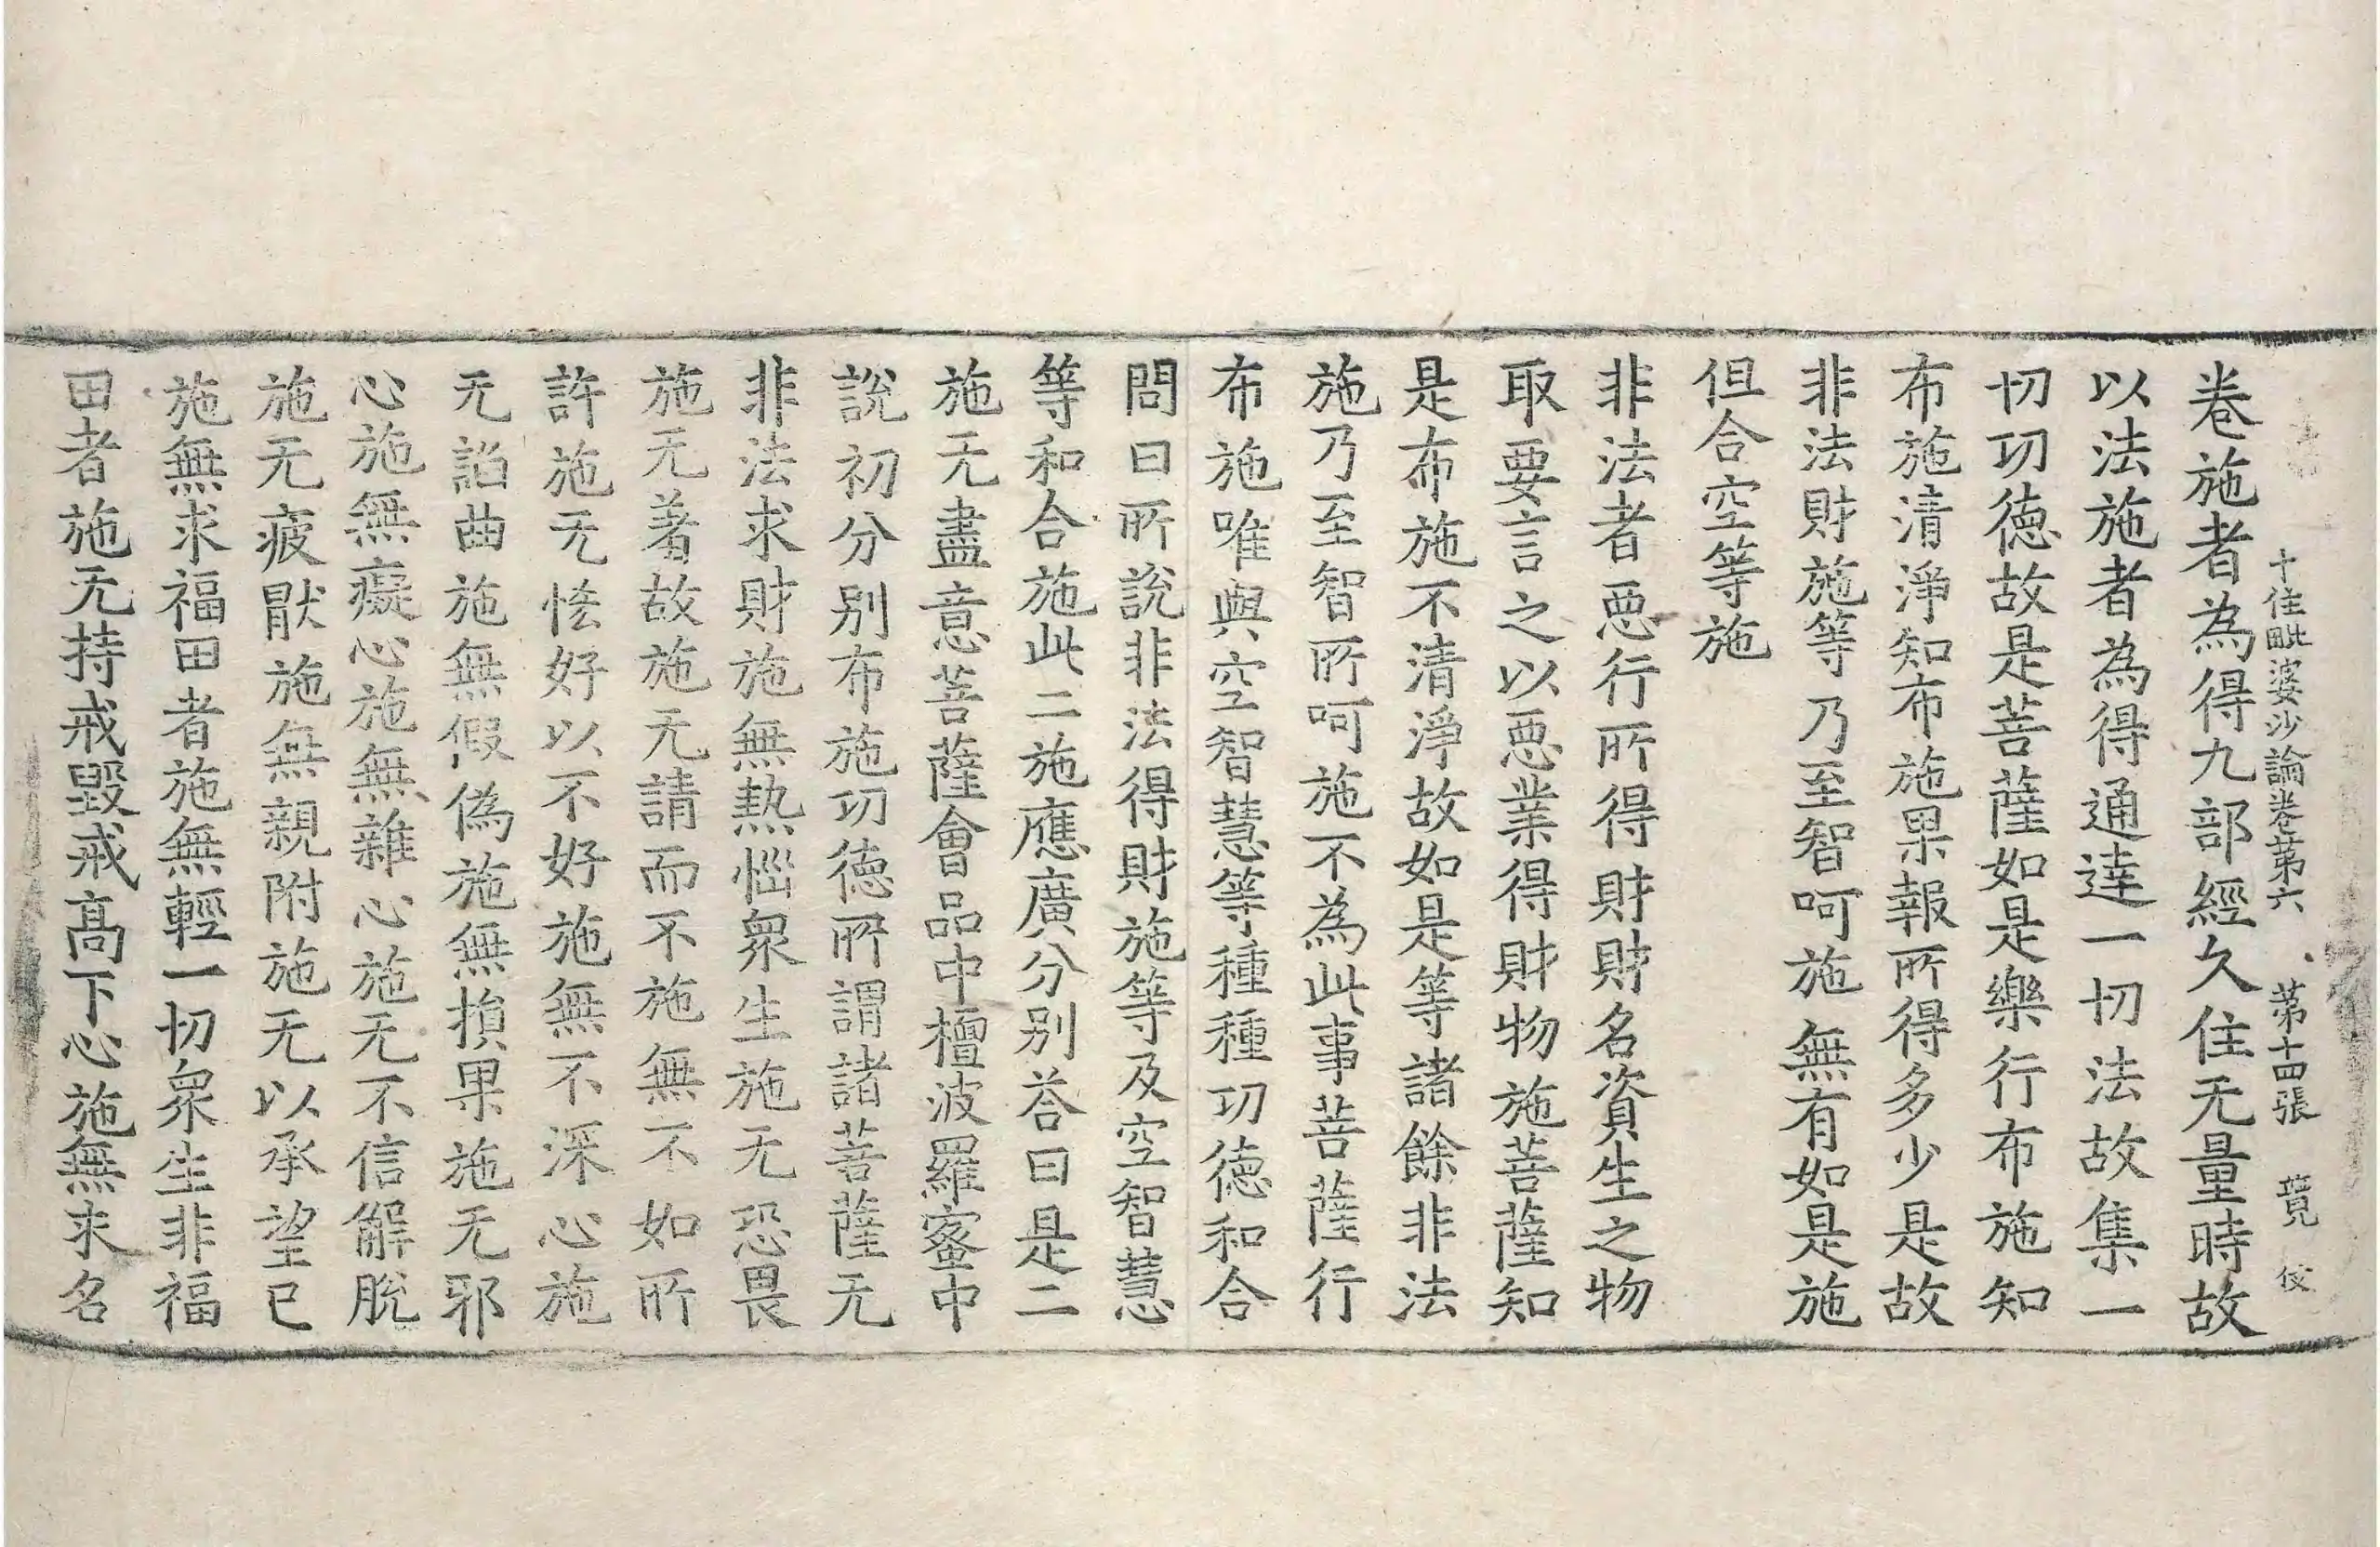 十住毗婆沙論卷苐六　苐十四張　覽　伇
卷施者為得九部經久住无量時故
以法施者為得通達一切法故集一
切功德故是菩薩如是樂行布施知
布施清淨知布施果報所得多少是故
非法財施等乃至智呵施無有如是施
但合空等施
非法者惡行所得財財名資生之物
取要言之以惡業得財物施菩薩知
是布施不清淨故如是等諸餘非法
施乃至智所呵施不為此事菩薩行
布施唯與空智慧等種種功德和合
問曰所說非法得財施等及空智慧
等和合施此二施應廣分別荅曰是二
施无盡意菩薩會品中檀波羅蜜中
說初分別布施功德所謂諸菩薩无
非法求財施無熱惱衆生施无恐畏
施无著故施无請而不施無不如所
許施无恡好以不好施無不深心施
无諂曲施無假偽施無損果施无邪
心施無癡心施無雜心施无不信解脫
施无疲猒施無親附施无以承望已
施無求福田者施無輕一切衆生非福
田者施无持戒毀戒髙下心施無求名